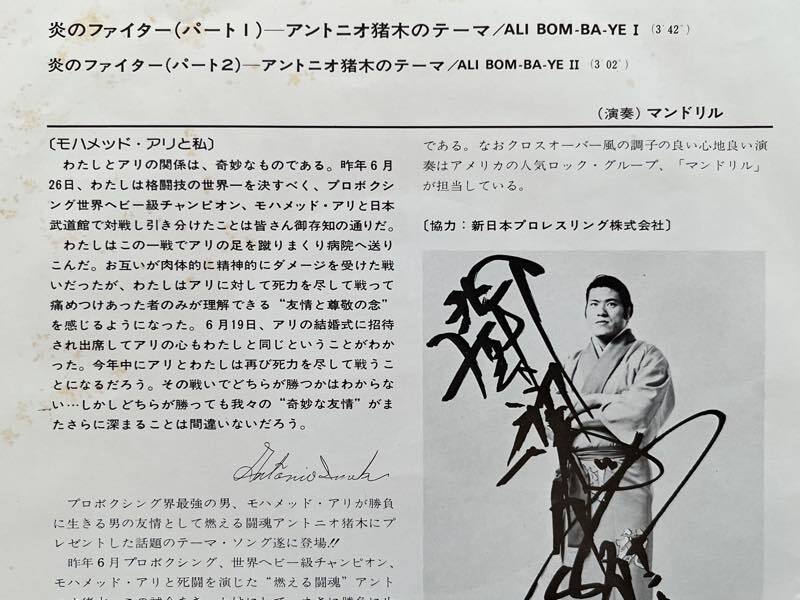 炎のファイター(パート1)―アントニオ猪木のテーマ/ALI BOM-BA-YE I (3′42″)
炎のファイター(パート2)―アントニオ猪木のテーマ/ALI BOM-BA-YE II (3′02″)
(演奏)マンドリル
〔モハメッド・アリと私〕
わたしとアリの関係は、奇妙なものである。昨年6月
26日、わたしは格闘技の世界一を決すべく、プロボクシ
ング世界ヘビー級チャンピオン、モハメッド・アリと日本
武道館で対戦し引き分けたことは皆さん御存知の通りだ。
わたしはこの一戦でアリの足を蹴りまくり病院へ送り
こんだ。お互いが肉体的に精神的にダメージを受けた戦
いだったが、わたしはアリに対して死力を尽して戦って
痛めつけあった者のみが理解できる“友情と尊敬の念”
を感じるようになった。6月19日、アリの結婚式に招待
され出席してアリの心もわたしと同じということがわか
った。今年中にアリとわたしは再び死力を尽して戦うこ
とになるだろう。その戦いでどちらが勝つかはわからな
い…しかしどちらが勝っても我々の“奇妙な友情”がま
たさらに深まることは間違いないだろう。
Antonio Inoki
プロボクシング界最強の男、モハメッド・アリが勝負
に生きる男の友情として燃える闘魂アントニオ猪木にプ
レゼントした話題のテーマ・ソング遂に登場!!
昨年6月プロボクシング、世界ヘビー級チャンピオン、
モハメッド・アリと死闘を演じた“燃える闘魂”アント
である。なおクロスオーバー風の調子の良い心地良い演
奏はアメリカの人気ロック・グループ、「マンドリル」
が担当している。
〔協力:新日本プロレスリング株式会社〕